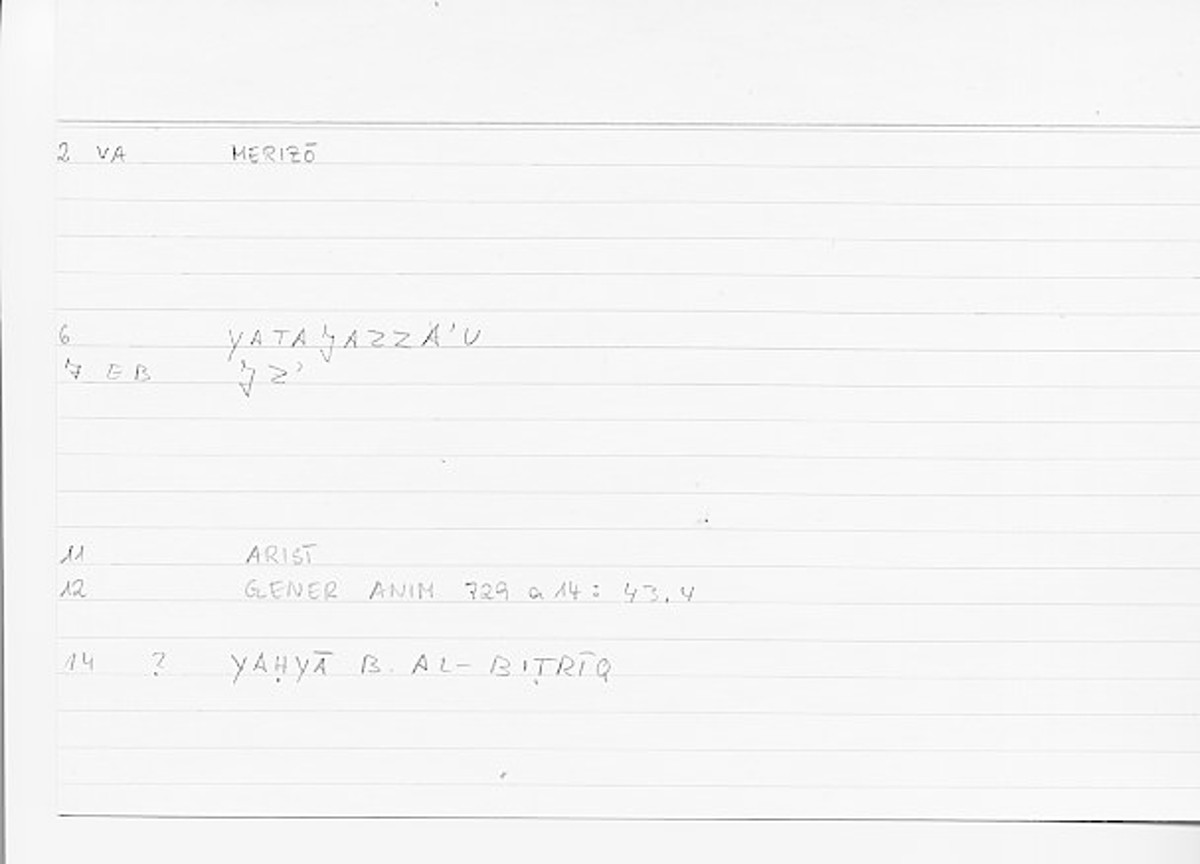 2 VA MERIZŌ
6 YATAǰAZZĀ'U
7 EB ǰZ'
11 ARIST
12 GENER ANIM 729 a 14: 43.4
14 ? YAḤYĀ B. AL-BIṬRĪQ